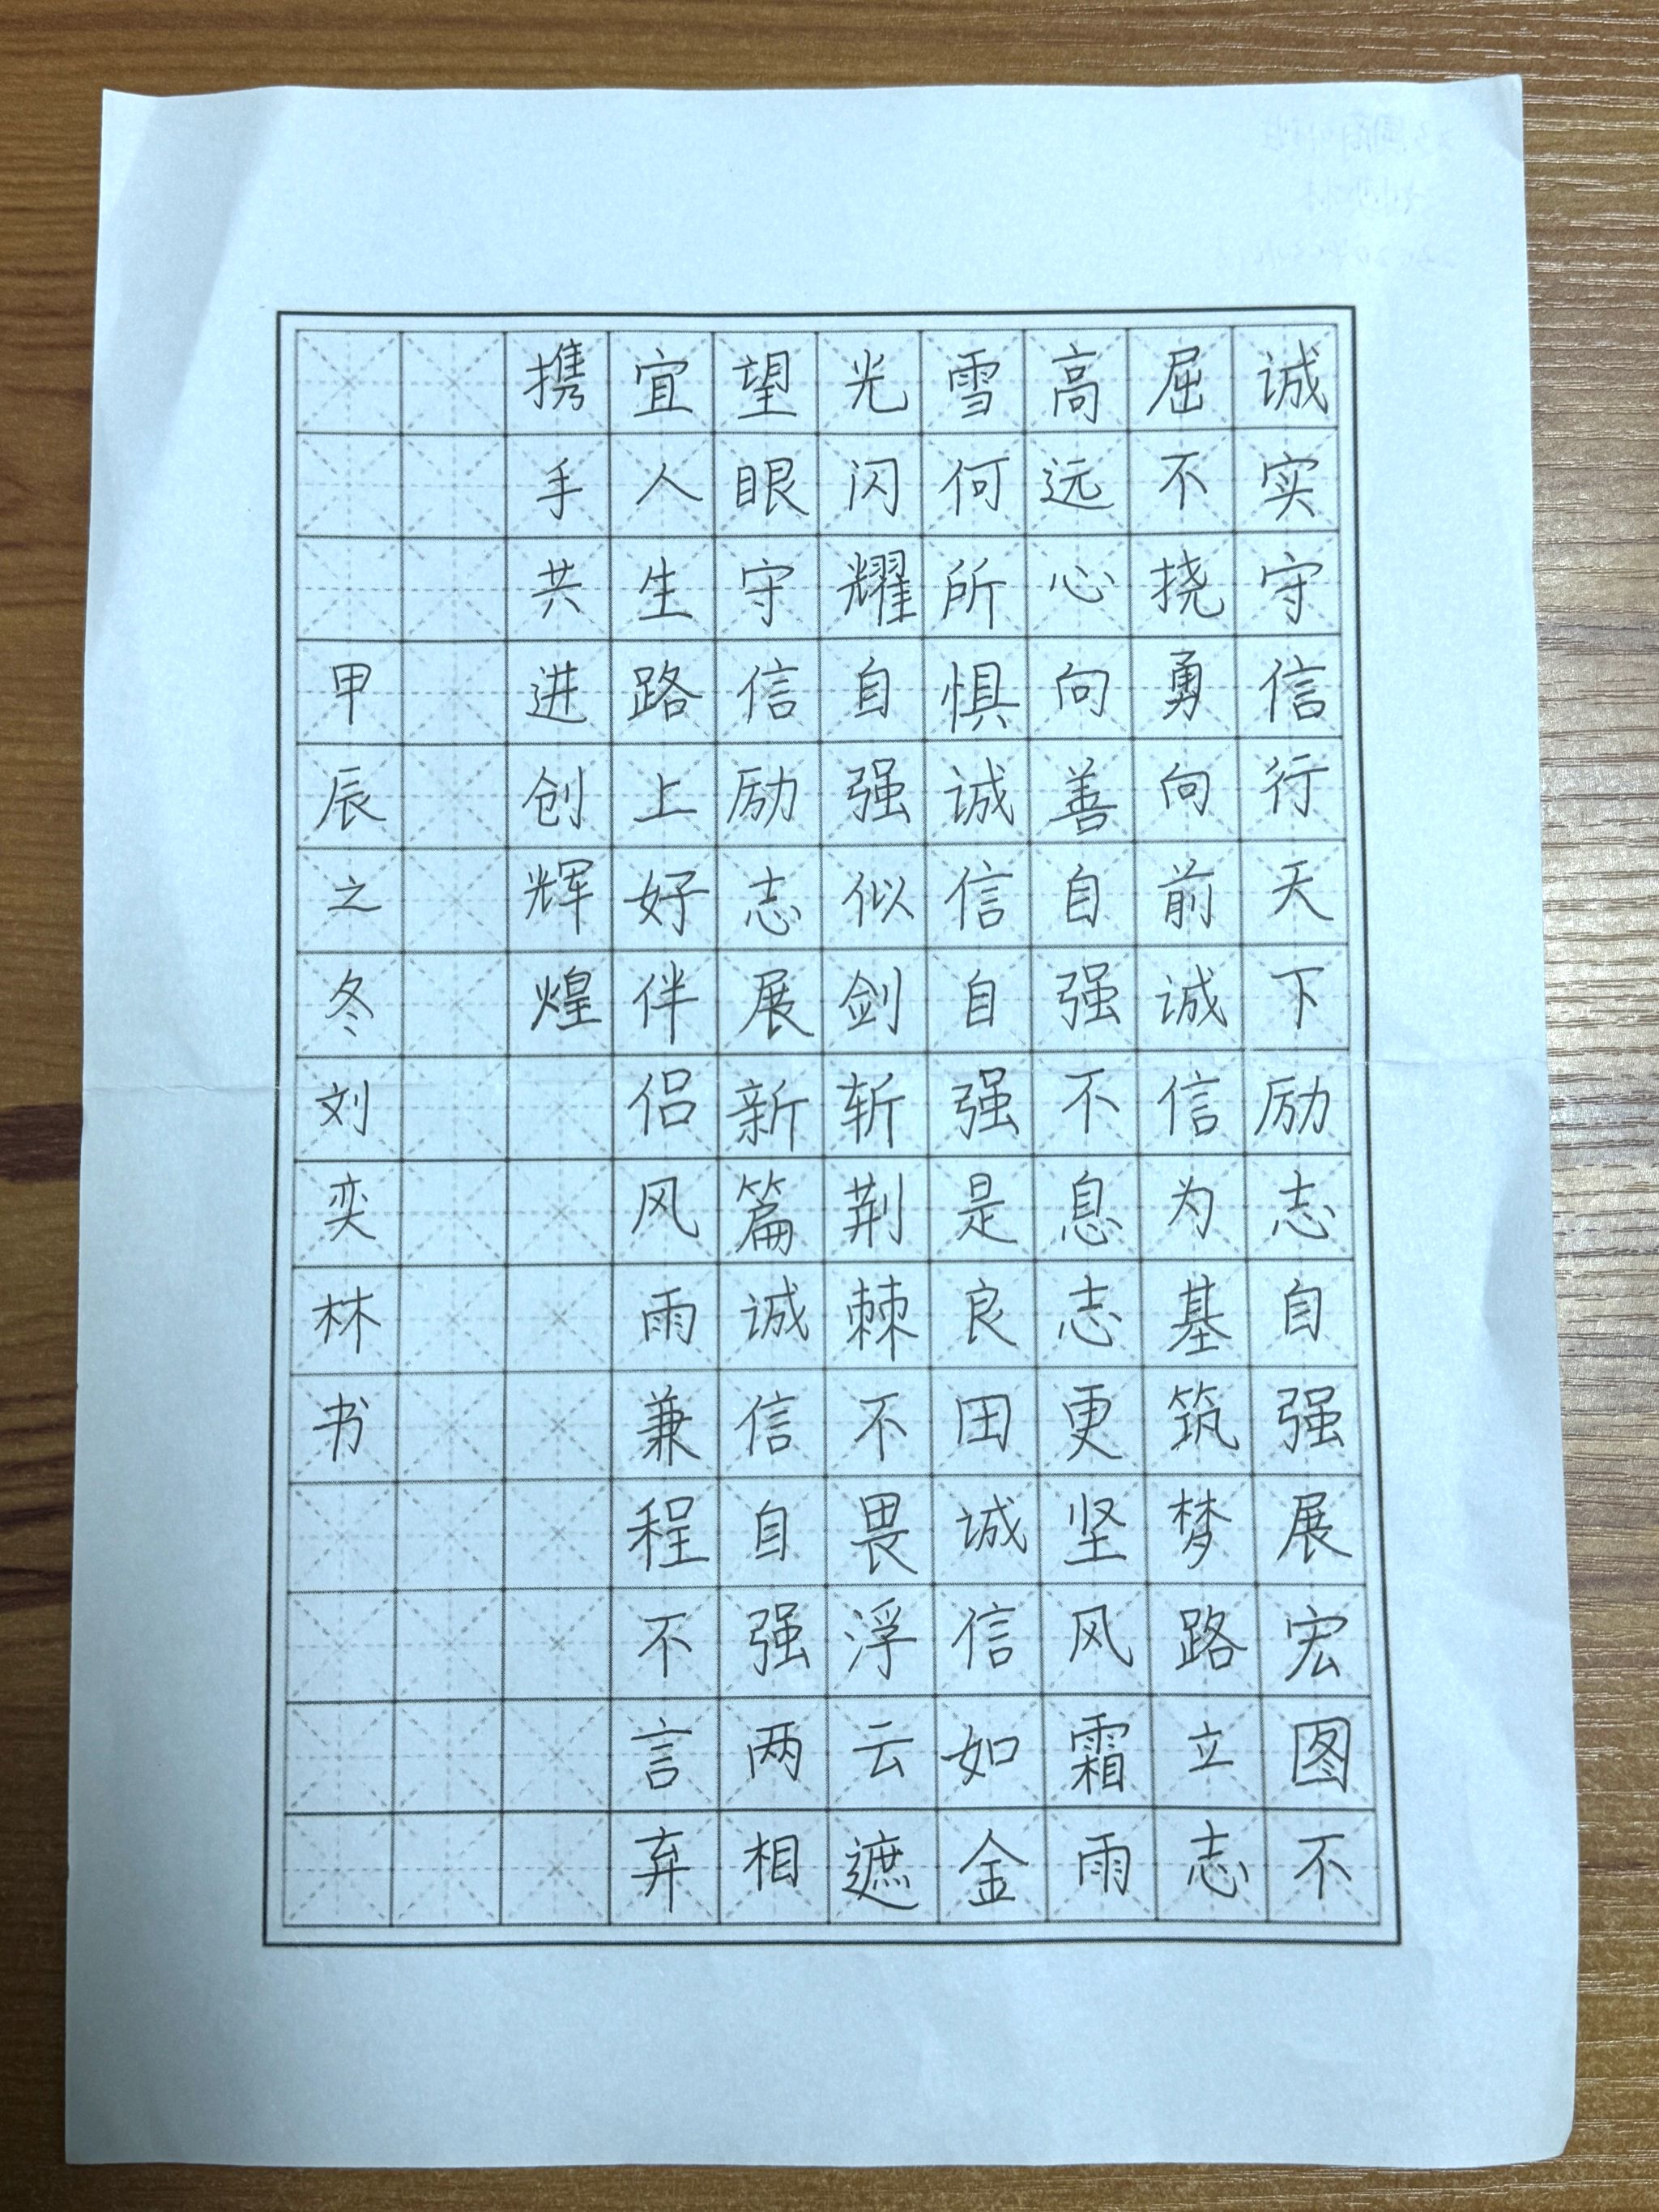 诚实守信行天下励志自强展宏图不
屈不挠勇向前诚信为基筑梦路立志
高远心向善自强不息志更坚风霜雨
雪何所惧诚信自强是良田诚信如金
光闪耀自强似剑斩荆棘不畏浮云遮
望眼守信励志展新篇诚信自强两相
宜人生路上好伴侣风雨兼程不言弃
携手共进创辉煌
甲辰之冬刘奕林书